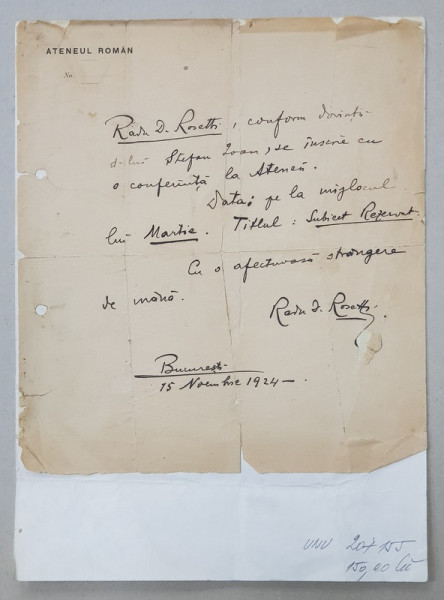 ATENEUL ROMÂN
No.
Radu D. Rosetti, conform dorinţii
d-lui Ştefan Ioan, se înscrie cu
o conferinţă la Ateneu.
Data: pe la mijlocul
lui Martie. Titlul: Subiect Rezervat.
Cu o afectuoasă strângere
de mână.
Radu D. Rosetti
Bucureşti
15 Noembrie 1924 —
UNU 20 + 155
150,00 lei